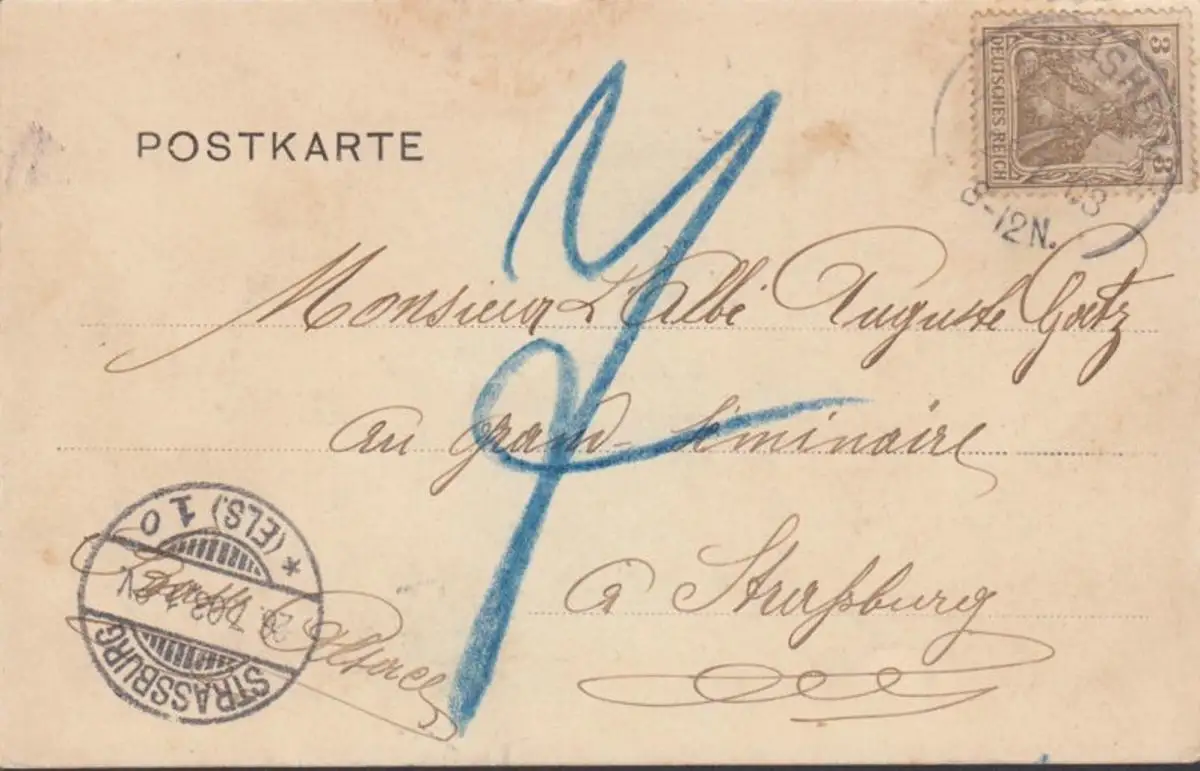 POSTKARTE
3 3
DEUTSCHES REICH
03
8-12N.
Monsieur L'Abbé Auguste Goetz
au grand-séminaire
à Straßburg
STRASSBURG
* (ELS.) 10